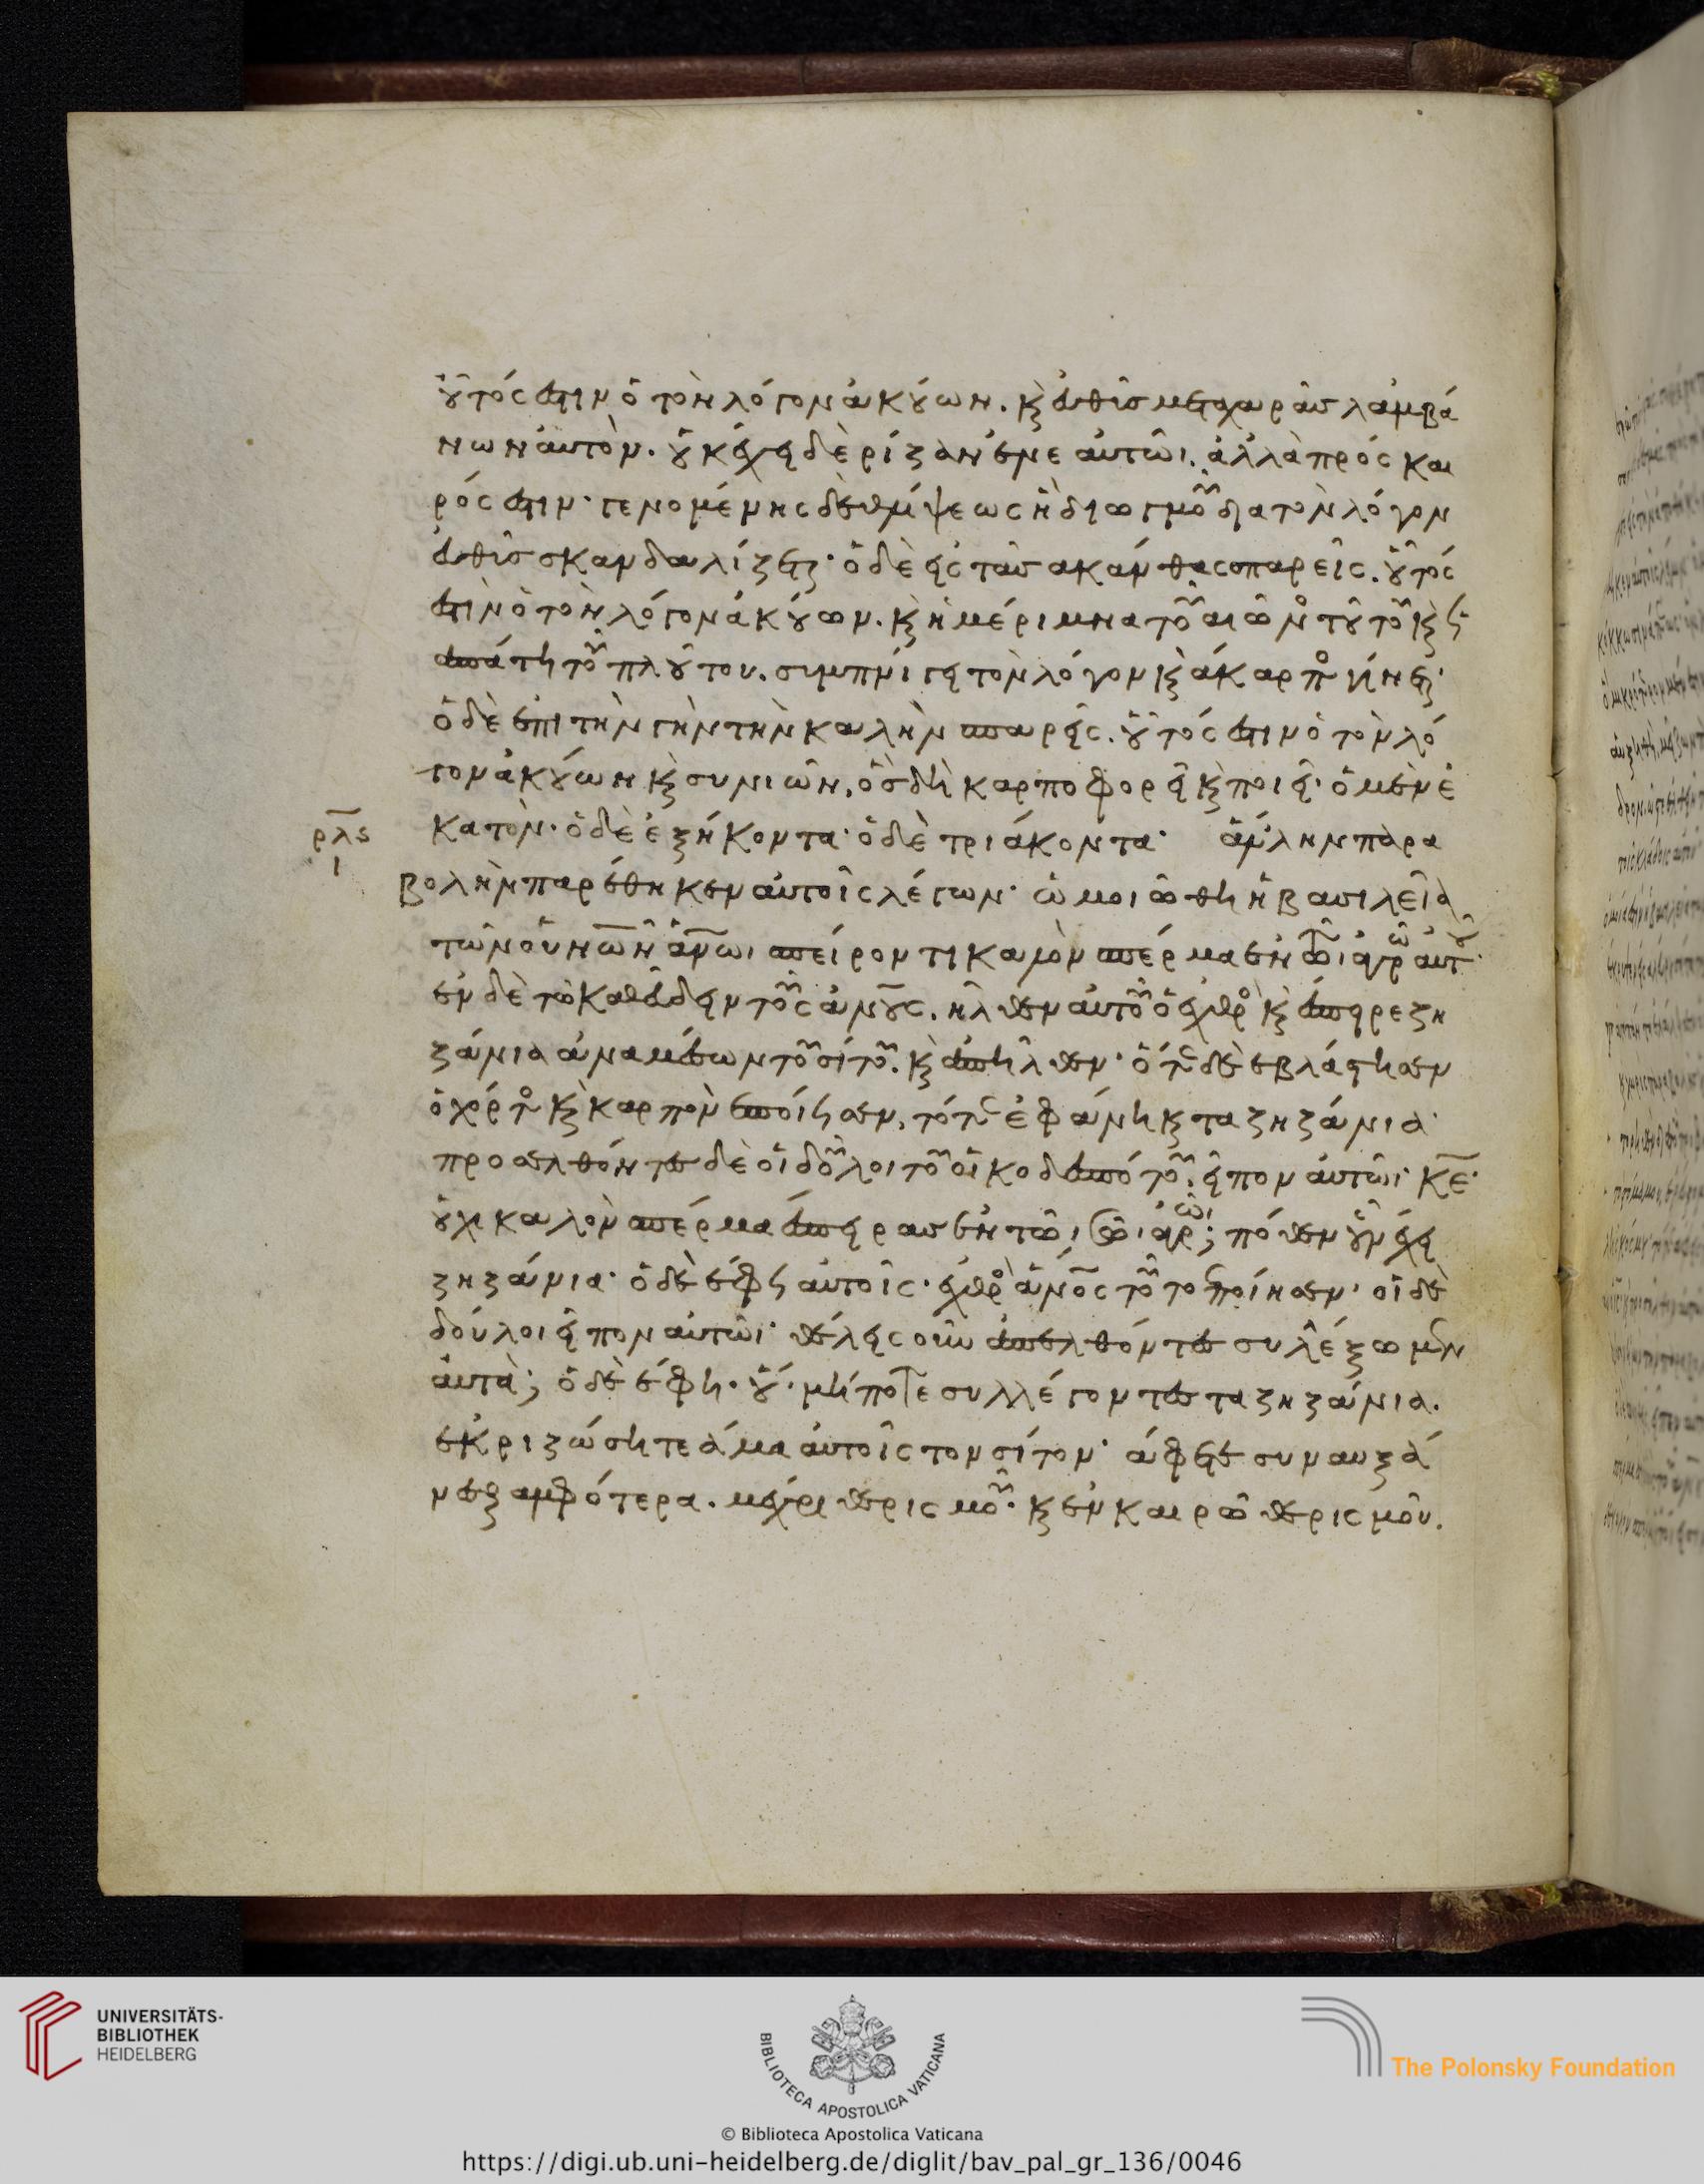 οὗτός ἐστιν ὁ τὸν λόγον ἀκούων. ϗ̀ εὐθὺς μεταχαρᾶς λαμβά
νων αὐτὸν. οὐκ ἔχει δὲ ρίζαν ἐν ἑαυτῶι. ἀλλὰ πρός και
ρός ἐστιν· γενομένης δὲ θλίψεως ἢ διωγμοῦ δια τὸν λόγον
εὐθὺς σκανδαλίζεται· ὁ δὲ εἰς τὰς ακάνθας σπαρεὶς. οὗτός
ἐστιν ὁ τὸν λόγον ἀκούων. ϗ̀ ἡ μέριμνα τοῦ αιῶνος τούτου ϗ̀ ἡ
ἀπάτη τοῦ πλούτου. συμπνίγει τὸν λόγον ϗ̀ ἄκαρπος γίνεται·
ὁ δὲ ἐπι τὴν γὴν τὴν καλὴν σπαρείς. οὗτός ἐστιν ὁ τὸν λό
γον ἀκούων ϗ̀ συνιῶν, ὃς δὴ καρποφορεῖ ϗ̀ ποιεῖ· ὁ μὲν ἑ
ρλς κατὸν· ὁ δὲ ἑξήκοντα· ὁ δὲ τριάκοντα· ἄλλην παρα
ι βολὴν παρέθηκεν αὐτοῖς λέγων· ὡμοιώθη ἡ βασιλεία
τῶν οὐν̅ω̅ν ἀν̅ω̅ι σπείροντι καλὸν σπέρμα ἐν τῶι ἀγρῶ αὐτοῦ·
ἐν δὲ τῶ καθεύδειν τοὺς ἀν̅ους. ἦλθεν αὐτοῦ ὁ ἐχθρὸς ϗ̀ ἔσπειρε ζη
ζάνια ἀναμέσων τοῦ σίτου. ϗ̀ ἀπῆλθεν· ὅτε δὲ ἐβλάστησεν
ὁ χόρτος ϗ̀ καρπὸν ἐποίησεν, τότε ἐφάνη ϗ τα ζηζάνια·
προσελθόντες δὲ οἱ δοῦλοι τοῦ οἰκοδεσπότου. εἶπον αὐτῶι· κ̅ε̅·
οὐχι καλὸν σπέρμα ἔσπειρας ἐν τῶι σῶι ἀγρῶι; πόθεν οὖν ἔχει
ζηζάνια· ὁ δὲ ἔφη αὐτοῖς· ἐχθρὸς ἄν̅ο̅ς τοῦτο ἐποίησεν· οἱ δὲ
δοῦλοι εἶπον αὐτῶι· θέλεις οὖν ἀπελθόντες συλλέξωμεν
αὐτὰ; ὁ δὲ ἔφη· οὔ· μήποτε συλλέγοντες τα ζηζάνια.
ἐκριζώσητε ἅμα αὐτοῖς τον σίτον· ἄφετε συναυξά
νεσθαι αμφότερα. μέχρι θερισμοῦ· ϗ ἐν καιρῶ θερισμοῦ.
UNIVERSITÄTS-
BIBLIOTHEK
HEIDELBERG
BIBLIOTECA APOSTOLICA VATICANA
The Polonsky Foundation
© Biblioteca Apostolica Vaticana
https://digi.ub.uni-heidelberg.de/diglit/bav_pal_gr_136/0046